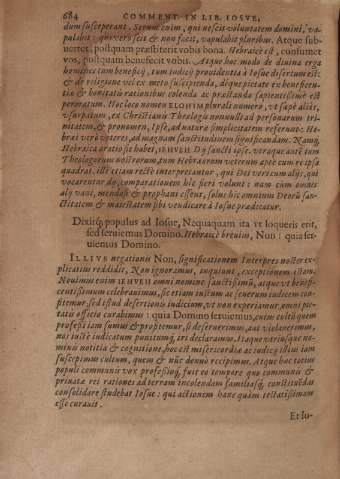 684 COMMENT. IN LIB. IOSVE,
dum susceperant. Servus enim, qui nescit voluntatem domini, vapulabit: qui vero scit & non facit, vapulabit pluribus. Atque subvertet, postquam præstiterit vobis bona. Hebraicè est, consumet
vos, postquam benefecit vobis. Atque hoc modo de divina erga
homines tum beneficẽtia, tum iudicij providentia à Iosue disertum est:
& de religione
& bonitatis ratione colenda ac præstanda sapientissimè est
peroratum. Hoc loco nomen ELOHIM plurali numero, ut sæpè aliàs,
usurpatum, ex Christianis Theologis nonnulli ad personarum trinitatem, & pronomen, Ipse, ad naturæ simplicitatem referunt: Hebræi verò veteres, ad magnam sanctitudinem significandam. Namq́;
Hebraica oratio sic habet, IEHVEH Dij sancti ipse. utroque autẽ tum
Theologorum nostrorum, tum Hebræorum veterum
quadrat. isti etiam rectè interpretantur, qui Dei verticum alijs, qui
vocarentur dij, comparationem hîc fieri volunt: nam cùm omnes
alij vani, mendaces & prophani essent, solus hic omnium Deorũ sanctitatem & maiestatem sibi vendicare à Iosue prædicatur.
Dixitq́; populus ad Iosue, Nequaquam ita ut loqueris erit,
sed seruiemus Domino. Hebraicè breuius, Non: quia seruiemus Domino.
ILLIVS negationis Non, significationem Interpres noster explicatius reddidit, Non ignoramus, inquiunt, exceptionem istam.
Novimus enim IEHVEH omni nomine sanctissimũ, atque ut beneficentissimum celebravimus, sic etiam iustum ac severum iudicem confitemur, sed istud desertionis iudicium, ut non experiamur, omni pietatis officio curabimus: quia Domino serviemus, cuius cultũ quem
professi iam sumus & profitemur, si deseruerimus, aut violaverimus,
nos iustè iudicatum punitumq́; iri declaramus. Itaque utriusque nominis notitia & cognitione, hoc est misericordiæ ac iudicij illius iam
suscepimus cultum, quem & nũc denuò recepimus. Atque hæc totius
populi communis vox professiq́; fuit eo tempore quo communis &
privatæ rei rationes ad terram incolendam familiasq́; constituẽdas
consolidare studebat Iosue: qui actionem hanc quàm testatissimam
esse curavit.
Et Io-